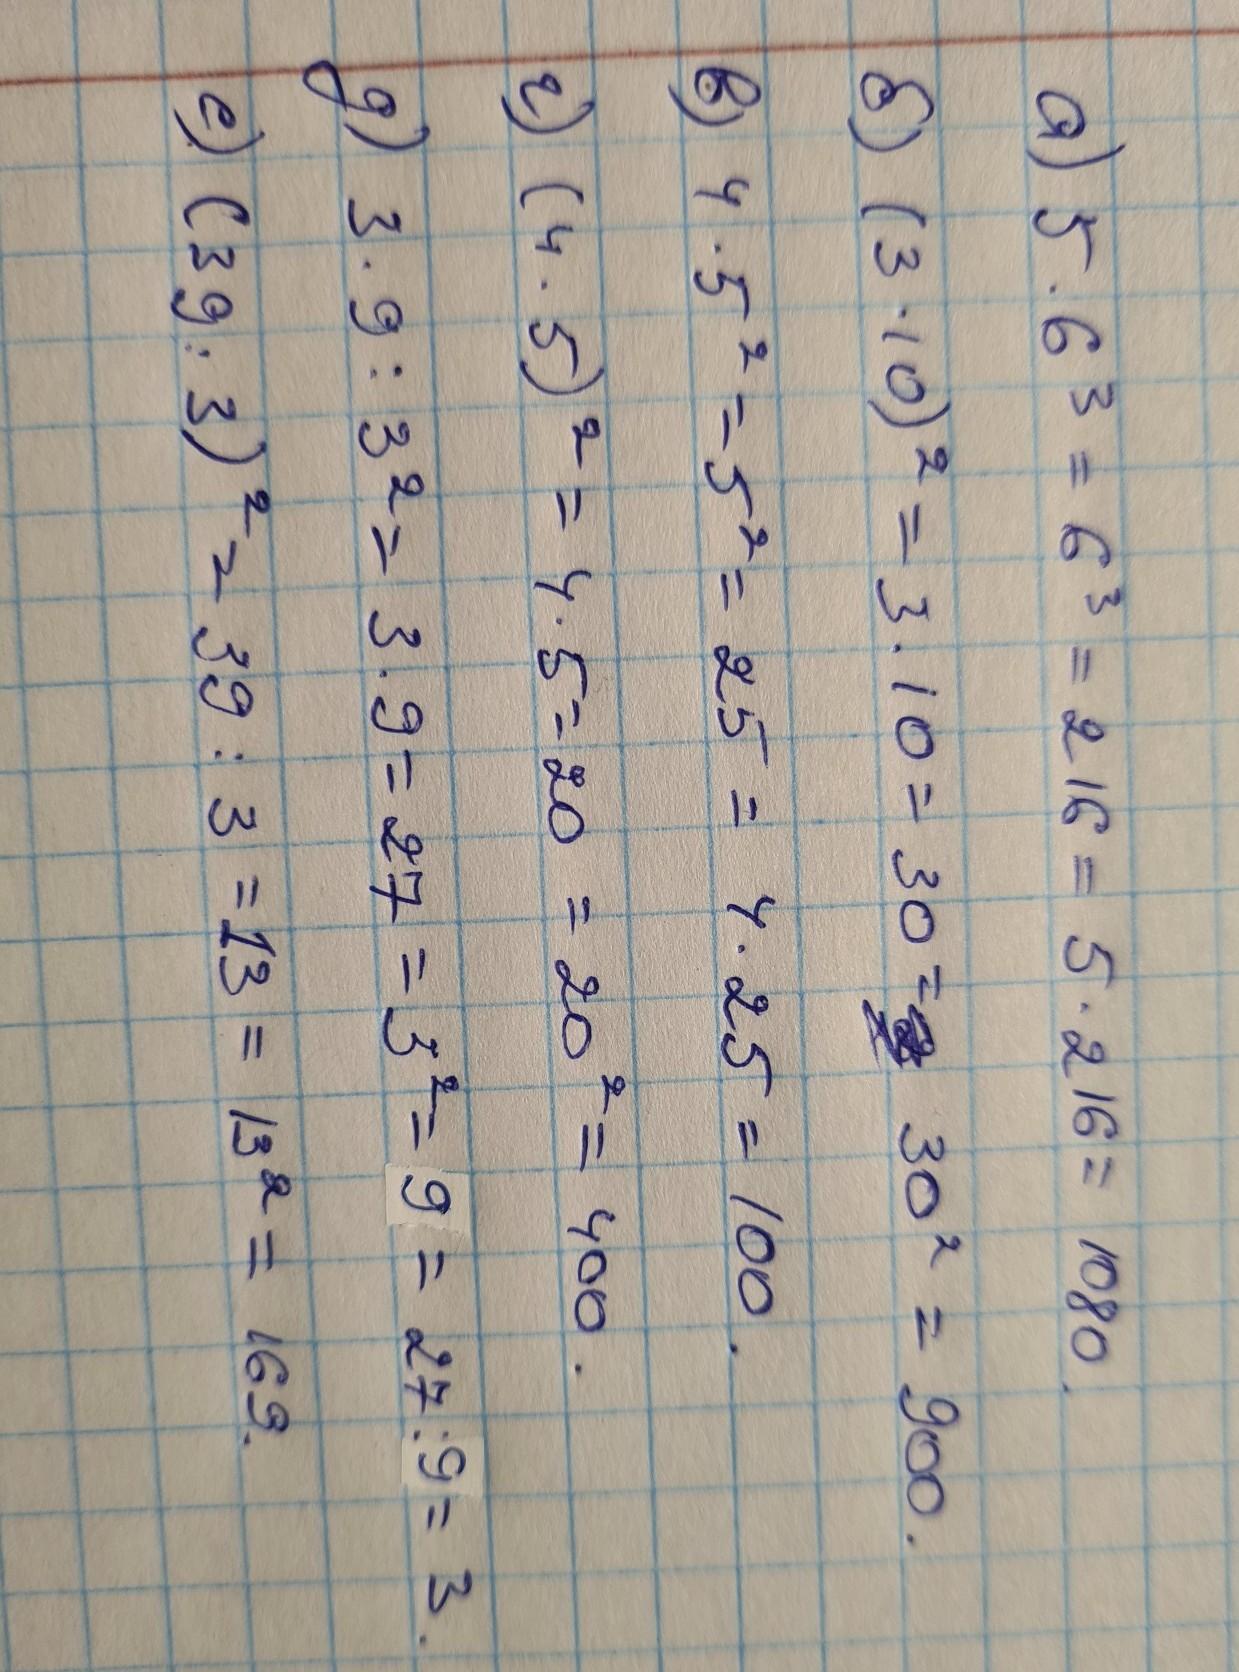 а) 5 · 6³ = 6³ = 216 = 5 · 216 = 1080.
б) (3 · 10)² = 3 · 10 = 30 = 30² = 900.
в) 4 · 5² = 5² = 25 = 4 · 25 = 100.
г) (4 · 5)² = 4 · 5 = 20 = 20² = 400.
д) 3 · 9 : 3² = 3 · 9 = 27 = 3² = 9 = 27 : 9 = 3.
е) (39 : 3)² = 39 : 3 = 13 = 13² = 169.